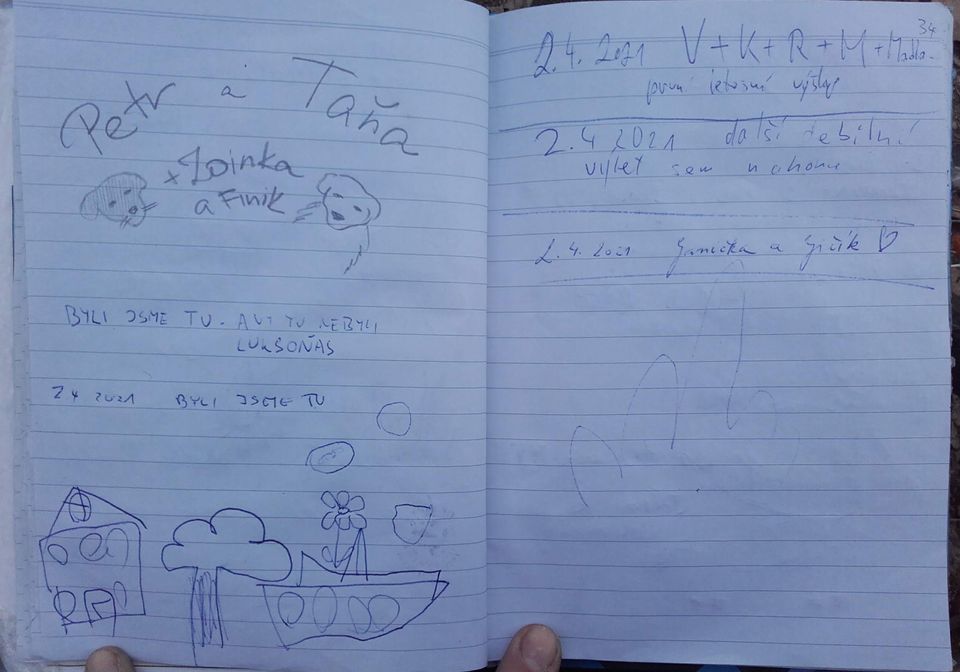 Petr a Taňa
x Zoinka
a Finik
BYLI JSME TU. A VY TU NEBYLI
LUKSOŇAS
2 4 2021 BYLI JSME TU
34
2.4.2021 V+K+R+M+Madla
první letošní výšlap
2.4 2021 další debilní
výlet sem nahoru
2.4.2021 Janička a Jiřík